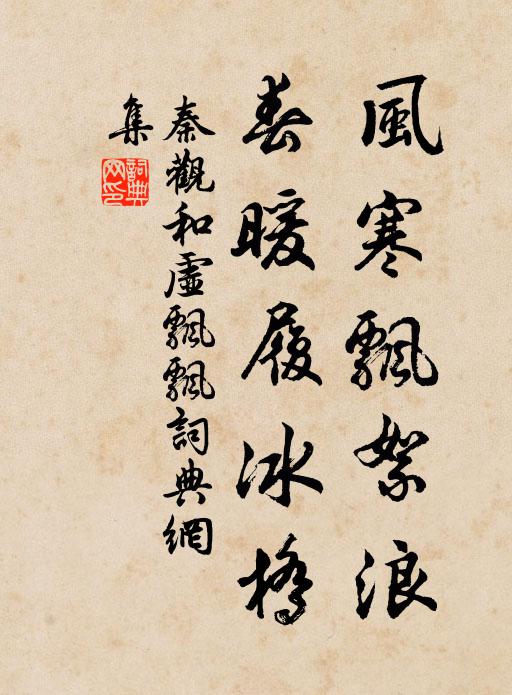 風寒飄絮浪
春暖履冰橋
秦觀和虛飄飄詞典網
集
詞典網印